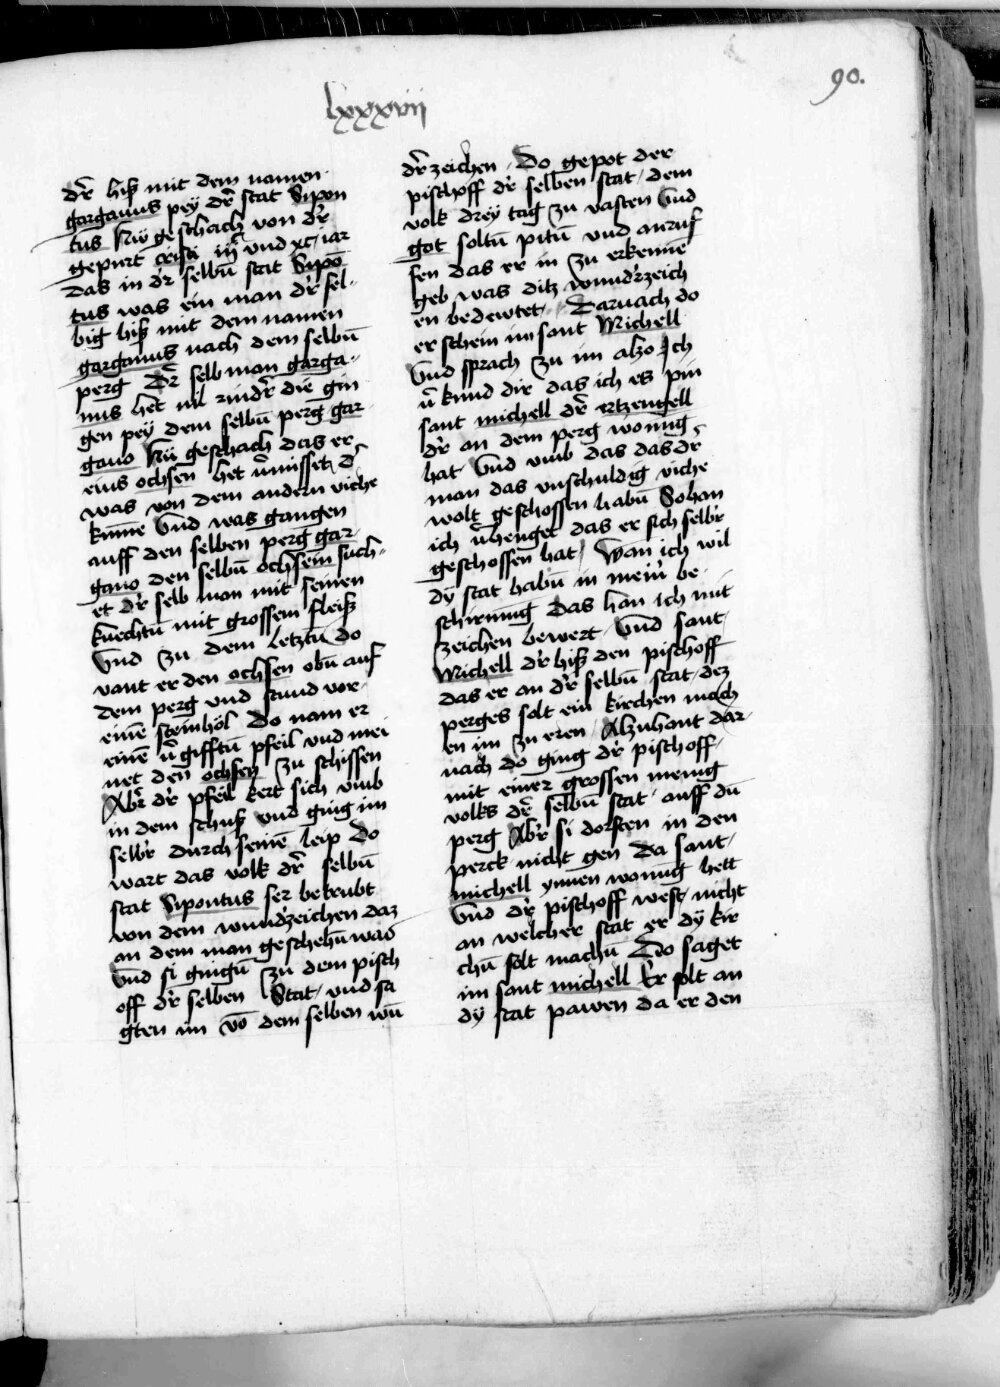 90.
lxxxvii
dr̄ hiß mit dem namen
garganus pey dr̄ stat Sipon
tus Nū geschach von dr̄
gepurt cristi iijͨ vnd xc iar
Das in dr̄ selbū stat Sipō
tus was ein man dr̄ sel-
big hiß mit dem namen
garganus nach dem selbū
perg Dr̄ selb man garga-
nus het vil rindr̄ die gin
gen pey dem selbū perg gar
gano Nū geschach das er
eins ochsen het v̄misset dr̄
was von dem andern viche
kumē Vnd was gangen
auff den selben perg gar-
gano den selbū ochsem such-
et dr̄ selb man mit seinen
knechtū mit grossem fleiß
Vnd zu dem letztū do
vant er den ochsen obū auf
dem perg vnd stund vor-
einē steinhöl Do nam er
einē v̄gifftū pfeil vnd mei
net den ochsen zu schissen
Abr̄ dr̄ pfeil kert sich vmb
in dem schuß vnd ging im
selbr̄ durch seinē leip Do
wart das volk dr̄ selbū
stat Sipontus ser betrubt
von dem wundr̄zeichen daz
an dem man geschehū was
Vnd si gingū zu dem pisch
off dr̄ selben Stat vnd sa
gten im vō dem selben wū
dr̄zeichen Do gepot der
pischoff dr̄ selben stat dem
volk drey tag zu vasten Vnd
got soltū pitū vnd anruf
fen das er in zu erkenne
geb was ditz wundr̄zeich
en bedewtet Darnach do
erschein im sant Michell
Vnd sprach zu im also Ich
v̄kund dir das ich es pin
sant michell dr̄ ertzengell
dr̄ an dem perg wonūg
hat Vnd vmb das das dr̄
man das vnschuldig viche
wolt geschossen habū So han
ich v̄henget das er sich selbr̄
geschossen hat Wan ich wil
dy stat habū in meinr̄ be-
schirmūg Das han ich mit
zeichen bewert Vnd sant
Michell dr̄ hiß den pischoff
das er an dr̄ selbū stat dez
perges solt ein kirchen mach
en im zu eren Alzuhant dar-
nach do ging dr̄ pischoff
mit einer grossen menig
volks dr̄ selbū stat auff dū
perg Abr̄ si dorften in den
perck nicht gen Da sant
michell ynnen wonūg hett
Vnd dr̄ pischoff west nicht
an welcher stat er dy kir
chū solt machū Do saget
im sant michell Er solt an
dy stat pawen da er den